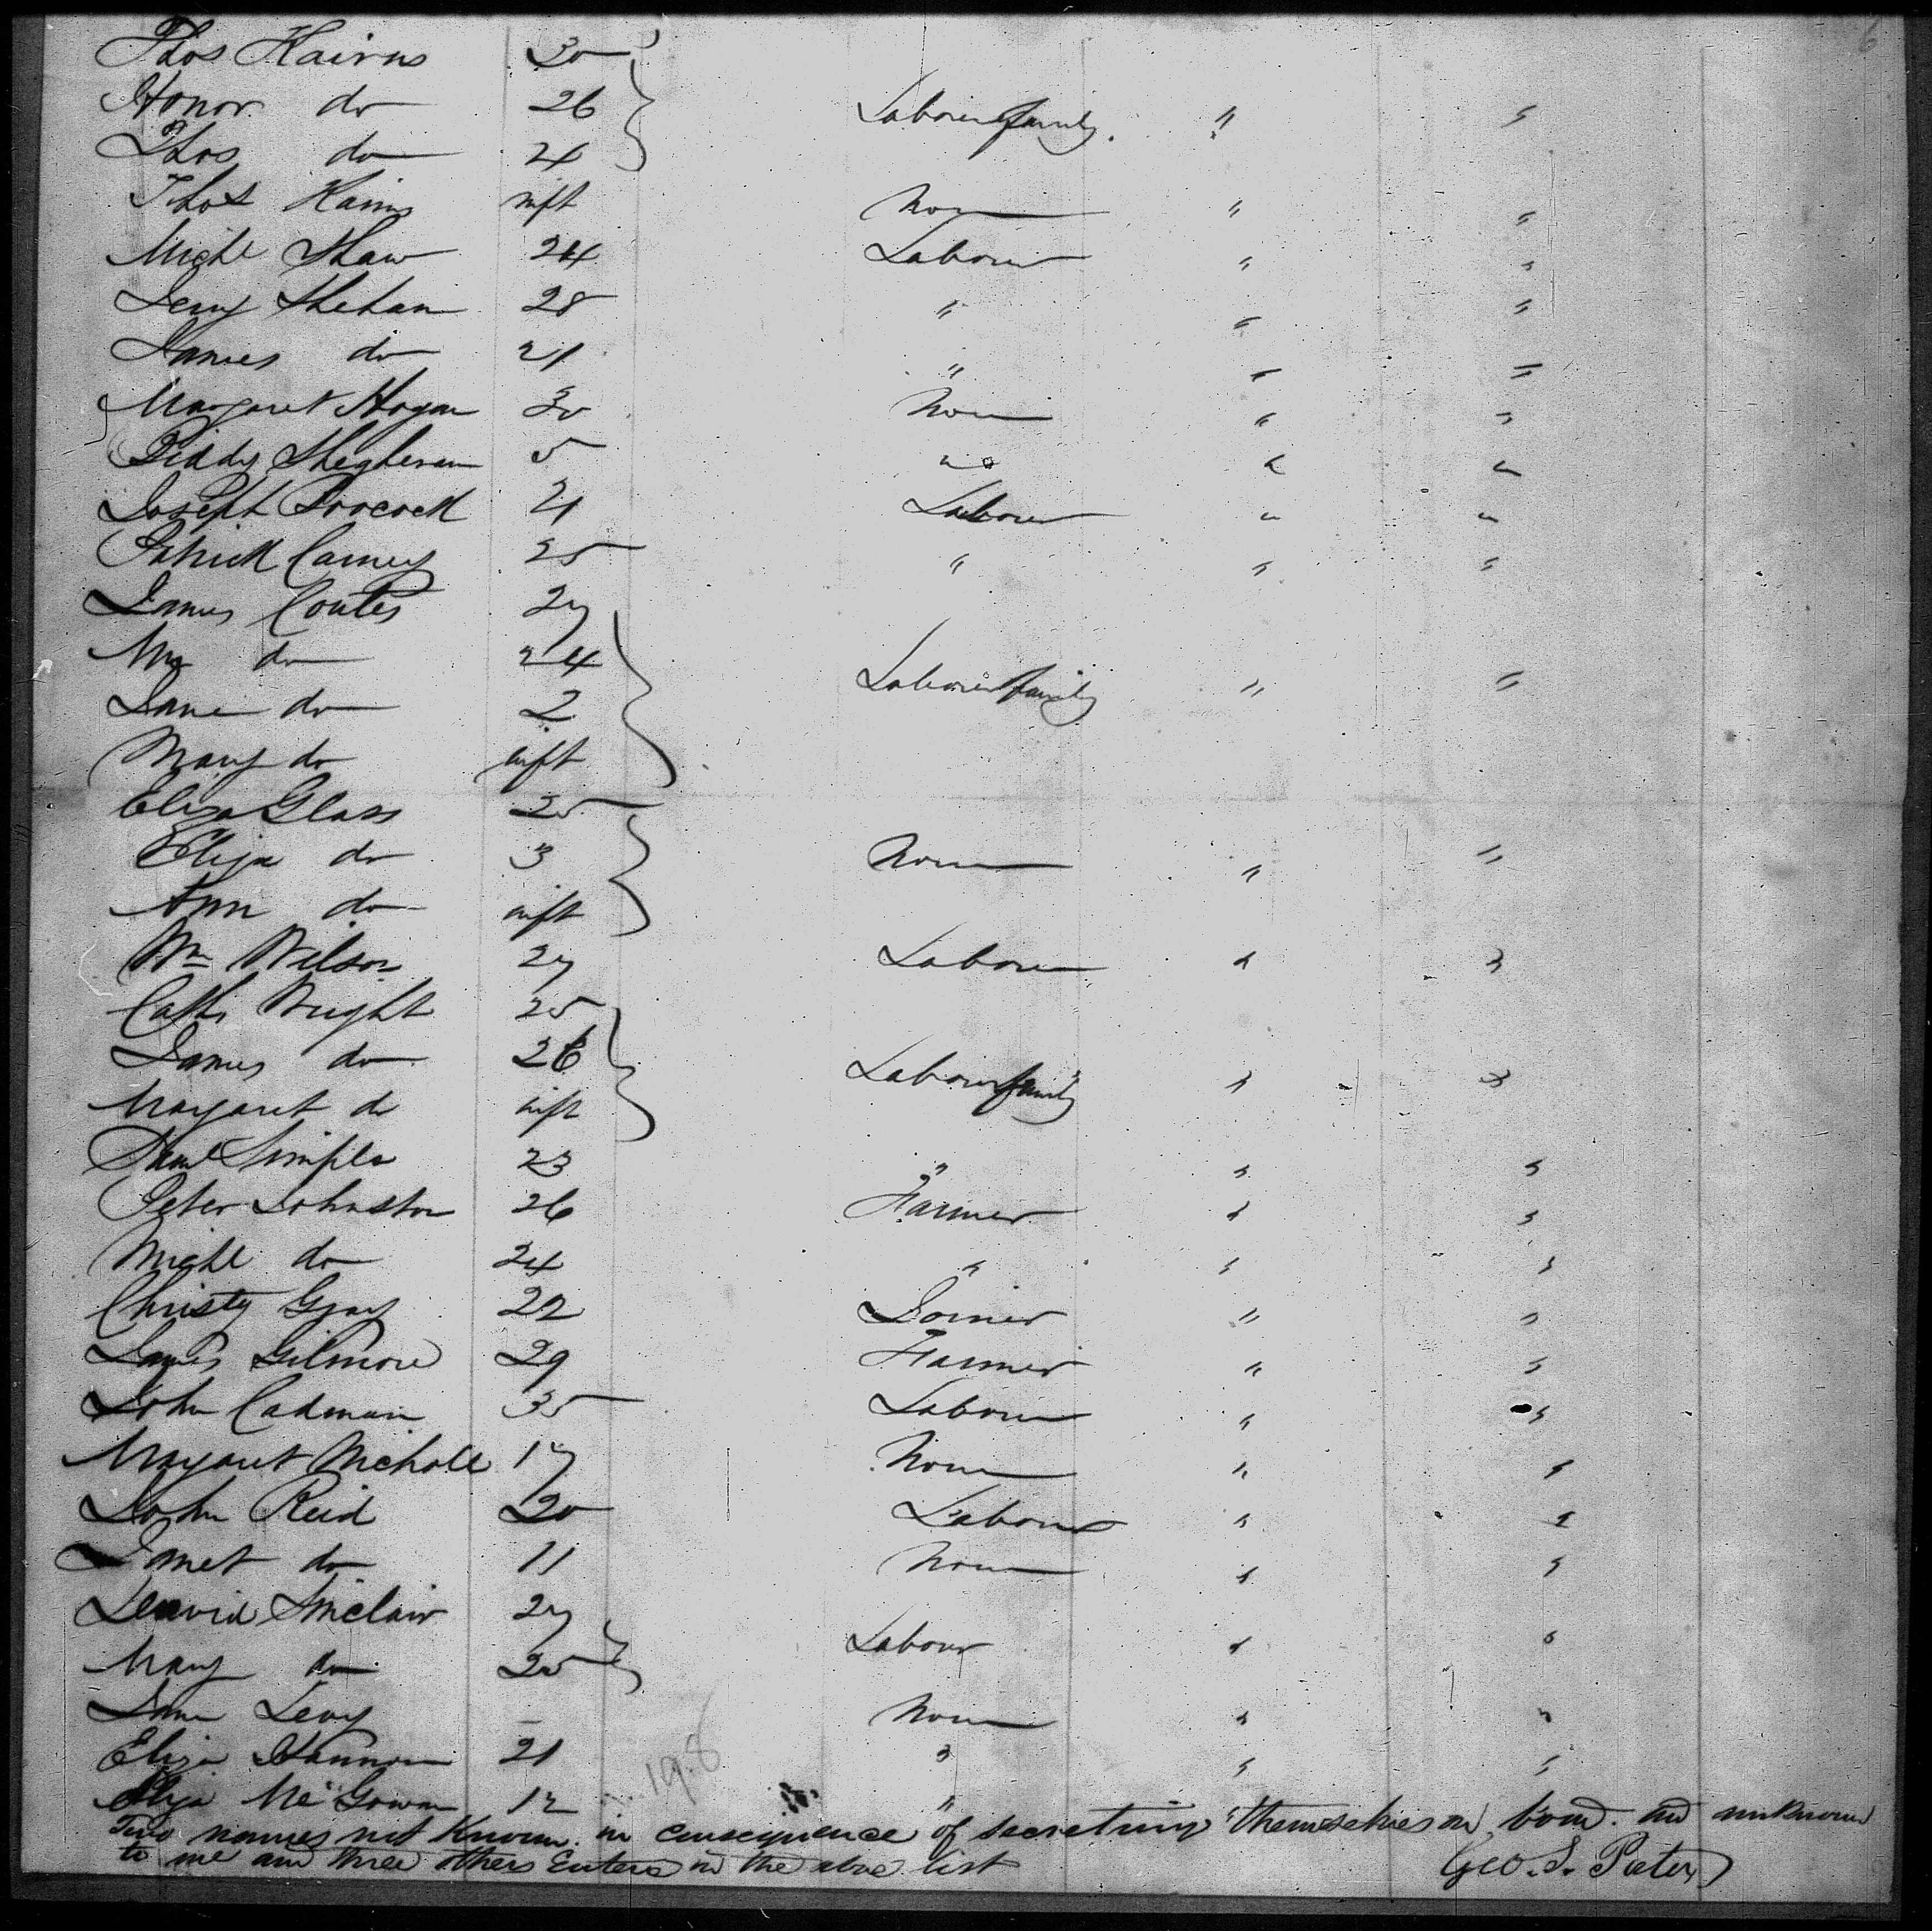 Thos Kairns 30
Honor do 26 Labourer family " "
Thos do 24
Thos Kairns inft None " "
Michl Shaw 24 Labourer " "
Jerry Shehan 28 " " "
James do 21 " " "
Margaret Hogan 30 None " "
Biddy 5 " " "
Joseph 21 Labourer " "
Patrick Carney 25 " " "
James Coutes 27
Mgt do 24 Labourer family " "
Jane do 2
Mary do inft
Eliza Glass 25
Eliza do 3 None " "
Ann do inft
Wm Wilson 27 Labourer " "
Cath Wright 25
James do 26 Labourer family " "
Margaret do inft
Saml Simple 23 " " "
Peter Johnston 26 Farmer " "
Michl do 24 " " "
Christy Gray 22 Joiner " "
James Gilmore 29 Farmer " "
John Cadman 35 Labourer " "
Margaret Nicholl 17 None " "
John Reid 20 Labourer " "
Janet do 11 None " "
David Sinclair 27
Mary do 25 Labour " "
Jane Levy – None " "
Eliza Hannon 21 " " "
198
Eliza McGowan 12 "
Two names not known in consequence of secreting themselves on board and unknown
to me and three others Enters in the above list Geo. S. Peters
6